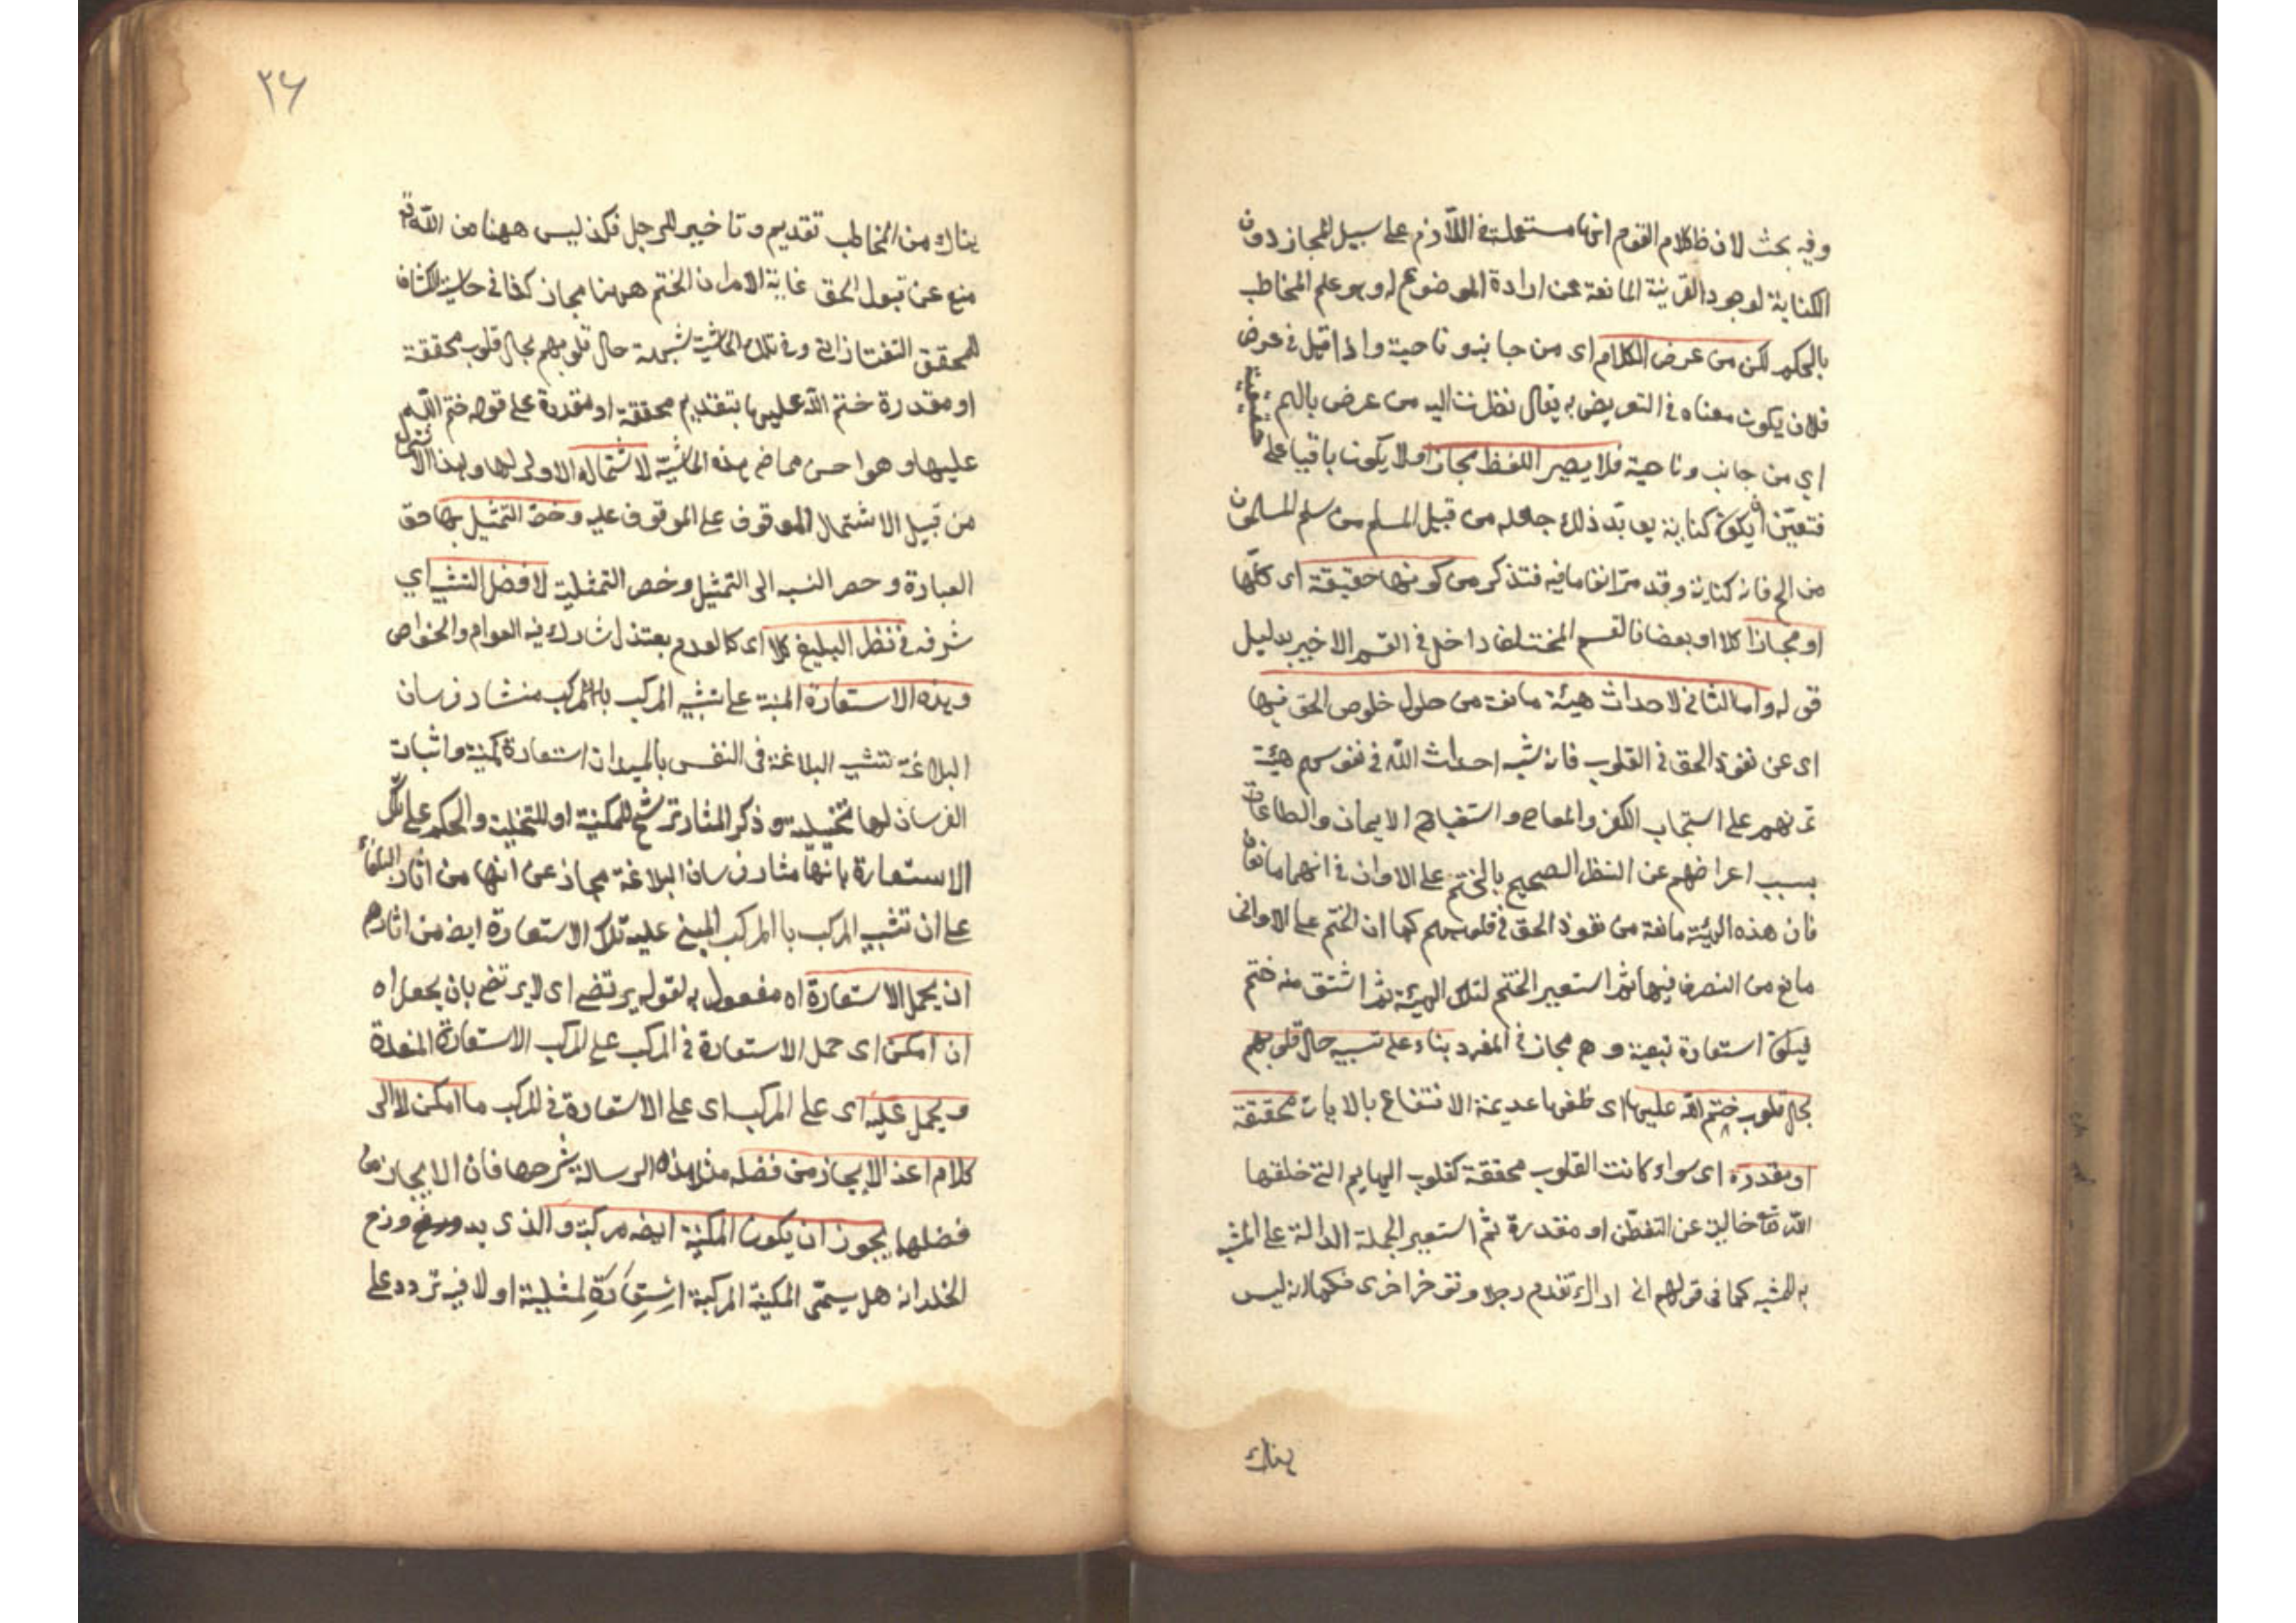 وفيه بحث لان ظ كلام القوم انها مستعملة في اللازم على سبيل المجاز دون
الكناية لوجود القرينة المانعة عن ارادة الموضوع له وهو علم المخاطب
بالحكم لكن من عرض الكلام اى من جانبه وناحية واذا قيل في عرض
فلان يكون معناه في التعويض به يقال نظرت اليه من عرض بالهم
اي من جانب وناحية فلا يصير اللفظ مجازا ولا يكون باقيا على حقيقية
فتعين ان يكون كناية يؤيد ذلك جعله من قبيل المسلم من سلم المسلمون
من الخ فانه كناية وقد مر انفا ما فيه فتذكر من كونها حقيقة اى كلها
او مجازا كلا او بعضا فالقسم المختلف داخل في القسم الاخير بدليل
قوله واما الثانى لاحداث هيئة مانعة من حلول خلوص الحق فيها
اى عن نفوذ الحق في القلوب فانه شبه احداث الله في نفوسهم هيئة
تمرنهم على استحباب الكفر والمعاصى واستقباح الايمان والطاعات
بسبب اعراضهم عن النظر الصحيح بالختم على الاوان في انهما مانعان
فان هذه الهيئة مانعة من نفوذ الحق في قلوبهم كما ان الختم على الاوانى
مانع من التصرف فيها ثم استعير الختم لتلك الهيئة ثم اشتق منه ختم
فيكون استعارة تبعية وهى مجاز في المفرد بناء على تشبيه حال قلوبهم
بحال قلوب ختم الله عليها اى خلقها عديمة الانتفاع بالايات محققة
او مقدرة اى سواء كانت القلوب محققة كقلوب البهايم التى خلقها
الله تعا خالية عن التفطن او مقدرة ثم استعير الجملة الدالة على المشبه
به للمشبه كما في قولهم انى اراك تقدم رجلا وتؤخر اخرى فكما انه ليس
هناك
٢٦
هناك من المخاطب تقديم وتاخير للرجل فكذ ليس ههنا من الله تع
منع عن قبول الحق غاية الامر ان الختم ههنا مجاز كذا في حاشية الكشاف
للمحقق التفتازانى وفي تلك الحاشية شبهة حال قلوبهم بحال قلوب محققة
او مقدرة ختم الله عليها بتقديم محققة او مقدرة على قوله ختم الله
عليها وهو احسن مما في هذه الحاشية لاشتماله الاولى لها وهذا الاشتمال
من قبيل الاشتمال الموقوف على الموقوف عليه وخص التمثيل بها حق
العبارة وحصر النسبه الى التمثيل وخص التمثلية لا فضل التشبيه اي
شرفه في نظر البليغ كلا اى كالعدم بعتذ اشارك فيه العوام والخواص
وهذه الاستعارة المبنية على تشبيه المركب بالمركب منشاد فرسان
البلاغة تشبيه البلاغة في النفس بالميدان استعارة مكنية واثبات
الفرسان لها تخييلية وذكر المثار ترشح للمكنية او للتخلية والحكم على تلك
الاستعارة بانها مثار فرسان البلاغة مجاز عن انها من اثار البلغاء
على ان تشبيه المركب با المركب المبنى عليه تلك الاستعارة ايضا من اثارهم
ان يحمل الاستعارة اه مفعول به لقوله يرتضى اى لا يرتضى بان يجعل اه
ان امكن اى حمل الاستعارة في المركب على المركب الاستعارة المنعدة
ويحمل عليه اى على المركب اى على الاستعارة في المركب ما امكن لا الى
كلام اعذ الايجاز من فضله مثل هذه الرسالة شرحها فان الايجاز من
فضلها يجوز ان يكون المكنية ايضه مركبة والذى يدور في وزع
الخلد انه هل يسمى المكنية المركبة استعارة تمثيلية او لا فيه تردد على